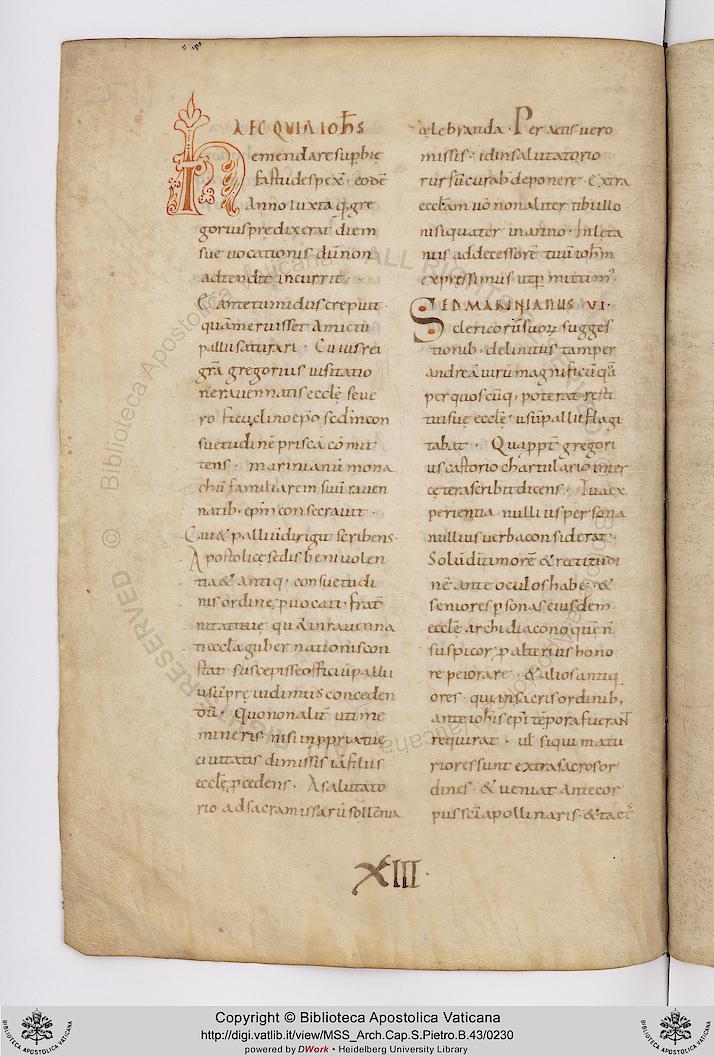 HAEC QUIA IOHS
emendare supbie
fastu despex̄ · eodē
anno iuxta q̨ gre
gorius prędixerat diem
sue vocationis dū non
adtendit incurrit ·
Et ante tumidus crepuit ·
quā meruisset amictū
pallii saturari · Cuius rei
grā gregorius visitatio
ne ravennatis ecclę seve
ro ficuclino epo scdm con
suetudinē priscā cōmit
tens · marinianū mona
chū familiarem suū raven
natib · epm consecravit ·
Cui & palliū dirigit scribens ·
Apostolicę sedis benivolen
tia & antiq · consuetudi
nis ordine pvocati · frat̄
nitati tuę quā in ravenna
ti eccla gubernationis con
stat suscepisse officiū pallii
usū prę vidimus conceden
dū · Quo non alit̄ uti me
mineris nisi in ppria tuę
civitatis dimissis iā filiis
ecclę pcedens · A salutato
rio ad sacra missarū sollēnia
cęlebranda · Per actis vero
missis · id in salutatorio
rursū curab̄ deponere · Extra
ecclam vō non aliter tibi illo
nisi quater in anno · In leta
niis ad decessorē tuū iohm
expressimus utp mittim ·
SED MARINIANUS VI ·
clericorū suoꝝ sugges
tionib · delinitus tam per
andreā virū magnificū quā
per quoscūq · poterat resti
tui suę ecclę · usū pallii flagi
tabat · Qua ppt̄ gregori
us castorio chartulario inter
cętera scribit dicens · Tua ex
perientia nullius persona
nullius verba consideret ·
Solū dī timorē & rectitudi
nē ante oculos habe · &
seniores psonas eiusdem
ecclę archidiaconū quē n̄
suspicor p alterius hono
re peiorare · & alios antiq
ores · qui in sacris ordinib ·
ante iohis epi tēpora fuerant
requirat · vel si qui matu
riores sunt extra sacros or
dines · & veniat ante cor
pus sci apollinaris · & tact̄
XIII ·
© Biblioteca Apostolica Vaticana ALL RIGHTS RESERVED
Copyright © Biblioteca Apostolica Vaticana
http://digi.vatlib.it/view/MSS_Arch.Cap.S.Pietro.B.43/0230
powered by DWork • Heidelberg University Library
BIBLIOTECA APOSTOLICA VATICANA
BIBLIOTECA APOSTOLICA VATICANA